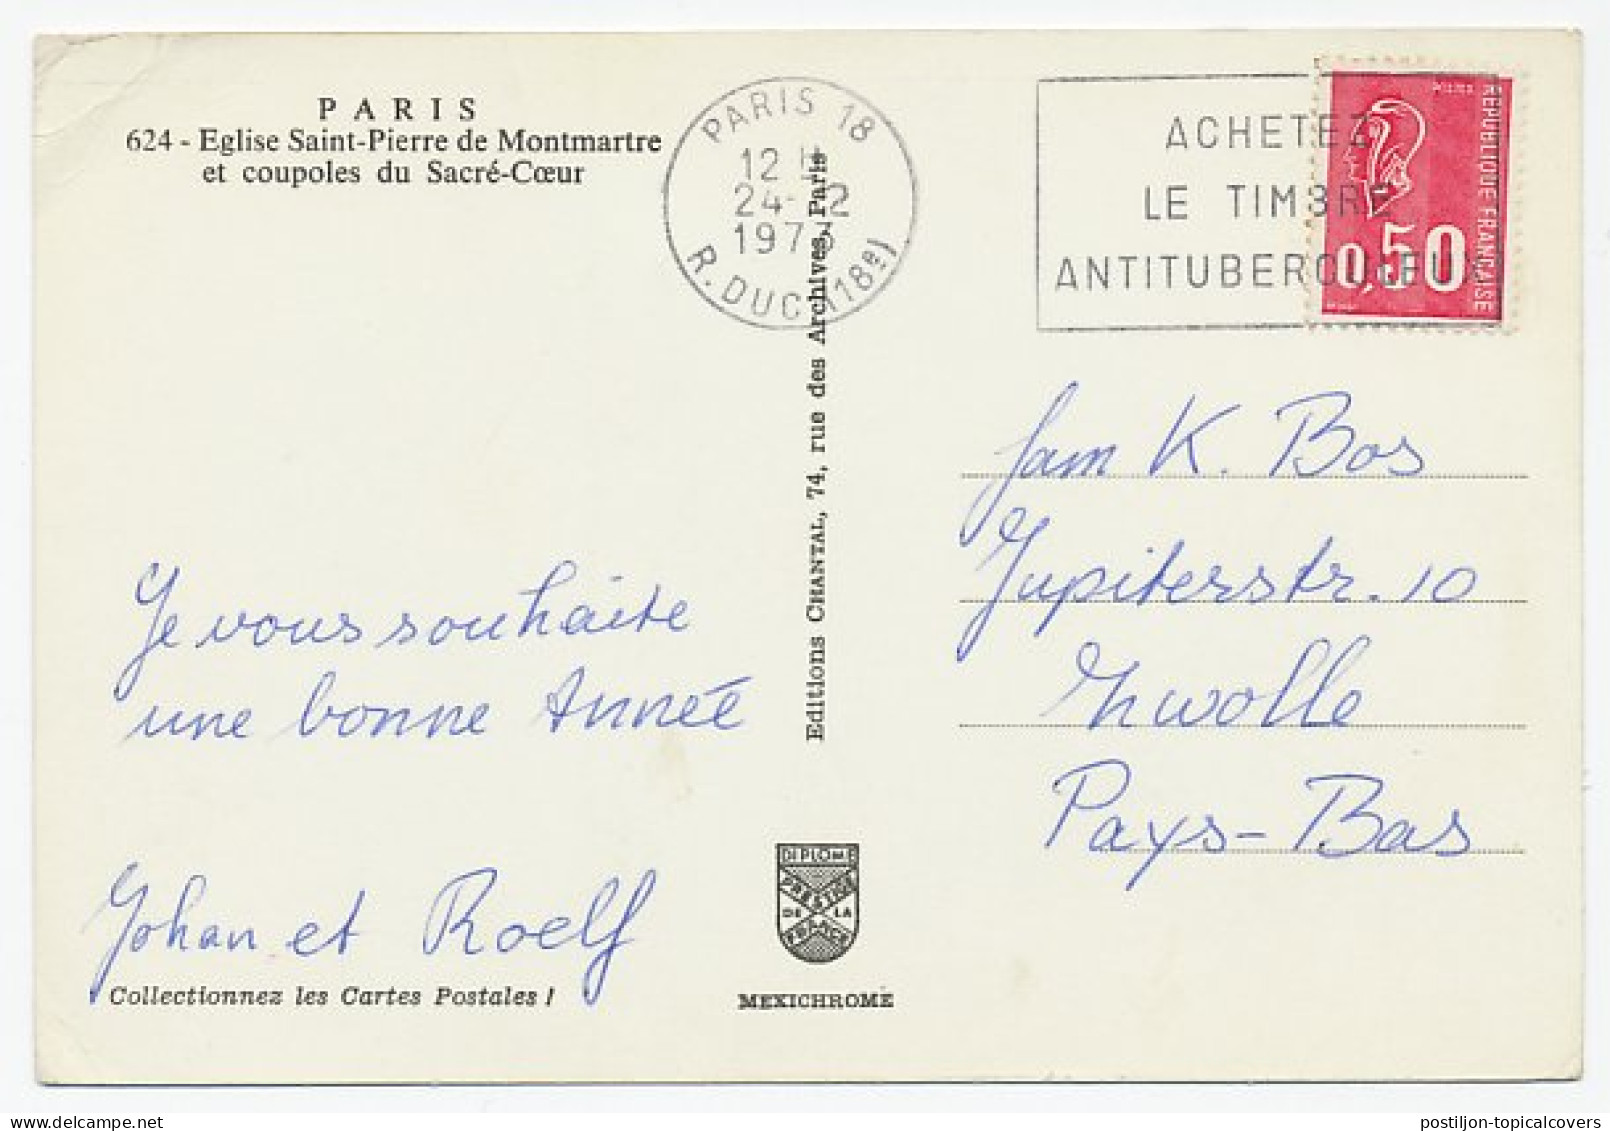 PARIS
624 - Eglise Saint-Pierre de Montmartre
et coupoles du Sacré-Cœur
PARIS 18
12 H
24-12
R. DUC (18e)
ACHETEZ
LE TIMBRE
ANTITUBERCULEUX
REPUBLIQUE FRANÇAISE
0,50
Je vous souhaite
une bonne Année
Johan et Roelf
Collectionnez les Cartes Postales !
Editions CHANTAL, 74, rue des Archives, Paris
DIPLOME
PRESTIGE
DE LA
FRANCE
MEXICHROME
Fam K. Bos
Jupiterstr. 10
Zwolle
Pays-Bas
postiljon-topicalcovers